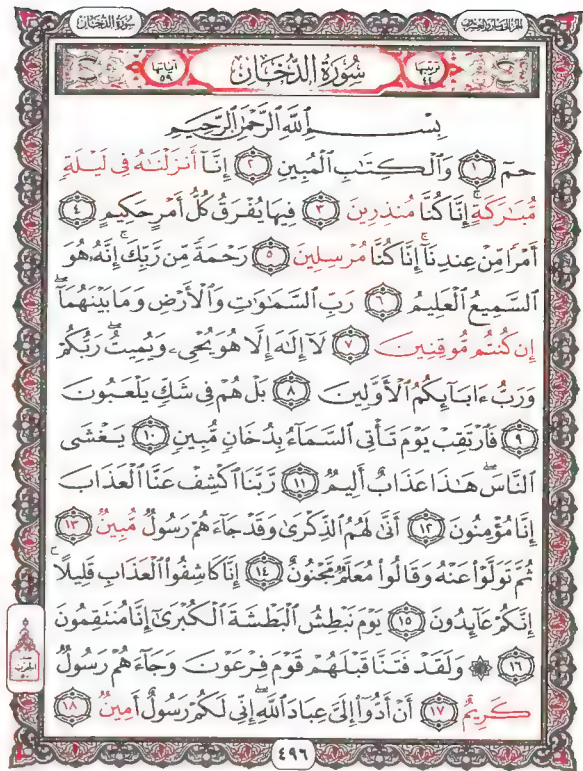 سُورَةُ الدُّخَانِ الجزء الخامس والعشرون
ترتيبها ٤٤ سُورَةُ الدُّخَانِ آياتها ٥٩
بِسْمِ ٱللَّهِ ٱلرَّحْمَٰنِ ٱلرَّحِيمِ
حمٓ ١ وَٱلْكِتَٰبِ ٱلْمُبِينِ ٢ إِنَّآ أَنزَلْنَٰهُ فِى لَيْلَةٍ
مُّبَٰرَكَةٍ ۚ إِنَّا كُنَّا مُنذِرِينَ ٣ فِيهَا يُفْرَقُ كُلُّ أَمْرٍ حَكِيمٍ ٤
أَمْرًا مِّنْ عِندِنَآ ۚ إِنَّا كُنَّا مُرْسِلِينَ ٥ رَحْمَةً مِّن رَّبِّكَ ۚ إِنَّهُۥ هُوَ
ٱلسَّمِيعُ ٱلْعَلِيمُ ٦ رَبِّ ٱلسَّمَٰوَٰتِ وَٱلْأَرْضِ وَمَا بَيْنَهُمَآ ۖ
إِن كُنتُم مُّوقِنِينَ ٧ لَآ إِلَٰهَ إِلَّا هُوَ يُحْىِۦ وَيُمِيتُ ۖ رَبُّكُمْ
وَرَبُّ ءَابَآئِكُمُ ٱلْأَوَّلِينَ ٨ بَلْ هُمْ فِى شَكٍّ يَلْعَبُونَ
٩ فَٱرْتَقِبْ يَوْمَ تَأْتِى ٱلسَّمَآءُ بِدُخَانٍ مُّبِينٍ ١٠ يَغْشَى
ٱلنَّاسَ ۖ هَٰذَا عَذَابٌ أَلِيمٌ ١١ رَّبَّنَا ٱكْشِفْ عَنَّا ٱلْعَذَابَ
إِنَّا مُؤْمِنُونَ ١٢ أَنَّىٰ لَهُمُ ٱلذِّكْرَىٰ وَقَدْ جَآءَهُمْ رَسُولٌ مُّبِينٌ ١٣
ثُمَّ تَوَلَّوْا۟ عَنْهُ وَقَالُوا۟ مُعَلَّمٌ مَّجْنُونٌ ١٤ إِنَّا كَاشِفُوا۟ ٱلْعَذَابِ قَلِيلًا ۚ
إِنَّكُمْ عَآئِدُونَ ١٥ يَوْمَ نَبْطِشُ ٱلْبَطْشَةَ ٱلْكُبْرَىٰٓ إِنَّا مُنتَقِمُونَ
١٦ ۞ وَلَقَدْ فَتَنَّا قَبْلَهُمْ قَوْمَ فِرْعَوْنَ وَجَآءَهُمْ رَسُولٌ
كَرِيمٌ ١٧ أَنْ أَدُّوٓا۟ إِلَىَّ عِبَادَ ٱللَّهِ ۖ إِنِّى لَكُمْ رَسُولٌ أَمِينٌ ١٨
الحزب ٥٠
٤٩٦